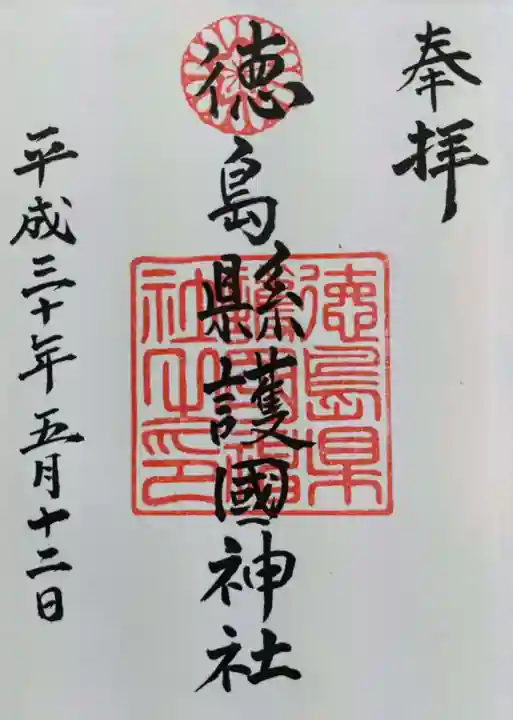 奉拝
徳島縣護國神社
徳島県護國神社之印
平成三十年五月十二日